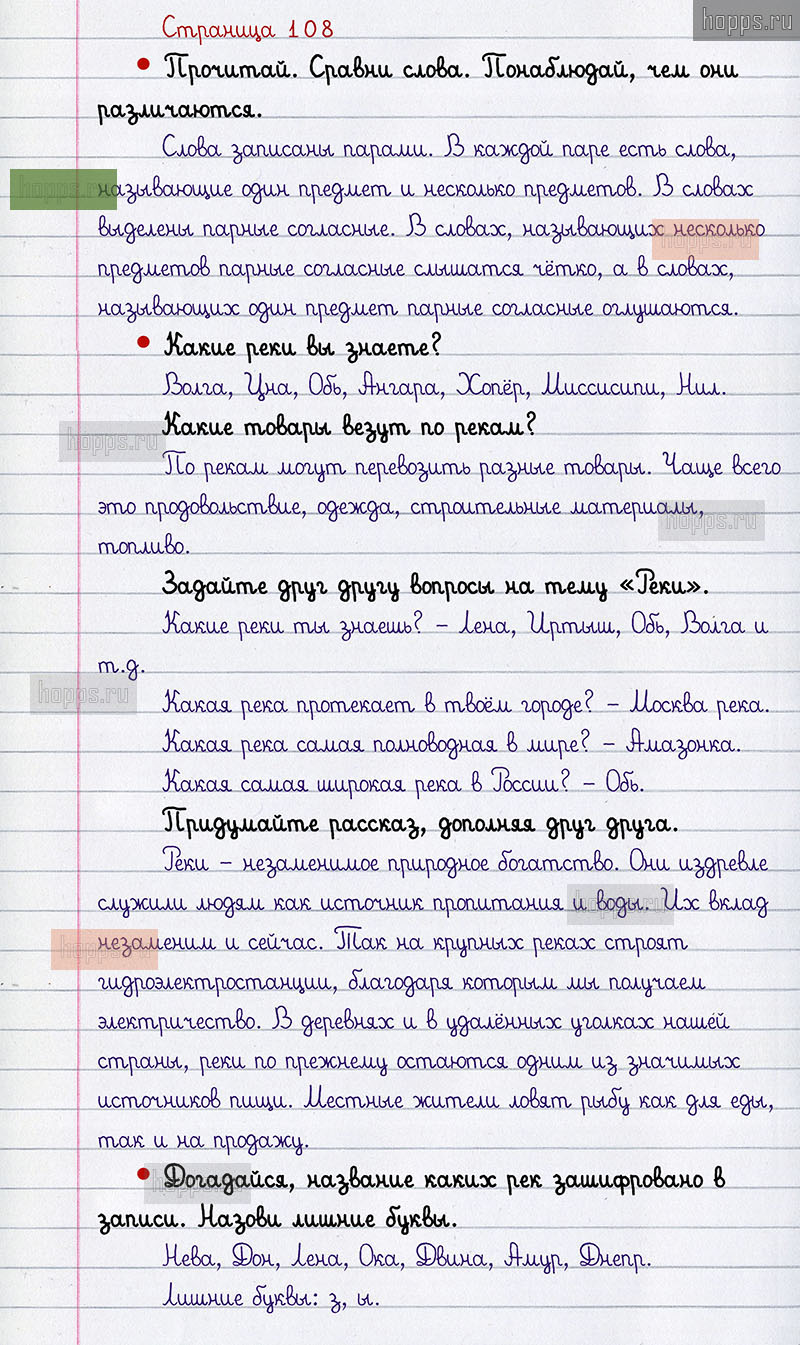 Страница 108
hopps.ru
• Прочитай. Сравни слова. Понаблюдай, чем они
различаются.
Слова записаны парами. В каждой паре есть слова,
называющие один предмет и несколько предметов. В словах
hopps.ru
выделены парные согласные. В словах, называющих несколько
hopps.ru
предметов парные согласные слышатся чётко, а в словах,
называющих один предмет парные согласные оглушаются.
• Какие реки вы знаете?
Волга, Цна, Обь, Ангара, Хопёр, Миссисипи, Нил.
Какие товары везут по рекам?
hopps.ru
По рекам могут перевозить разные товары. Чаще всего
это продовольствие, одежда, строительные материалы,
hopps.ru
топливо.
Задайте друг другу вопросы на тему «Реки».
Какие реки ты знаешь? – Лена, Иртыш, Обь, Волга и
т.д.
hopps.ru
Какая река протекает в твоём городе? – Москва река.
Какая река самая полноводная в мире? – Амазонка.
Какая самая широкая река в России? – Обь.
Придумайте рассказ, дополняя друг друга.
Реки – незаменимое природное богатство. Они издревле
служили людям как источник пропитания и воды. Их вклад
hopps.ru
незаменим и сейчас. Так на крупных реках строят
hopps.ru
гидроэлектростанции, благодаря которым мы получаем
электричество. В деревнях и в удалённых уголках нашей
страны, реки по прежнему остаются одним из значимых
источников пищи. Местные жители ловят рыбу как для еды,
так и на продажу.
• Догадайся, название каких рек зашифровано в
hopps.ru
записи. Назови лишние буквы.
Нева, Дон, Лена, Ока, Двина, Амур, Днепр.
Лишние буквы: з, ы.